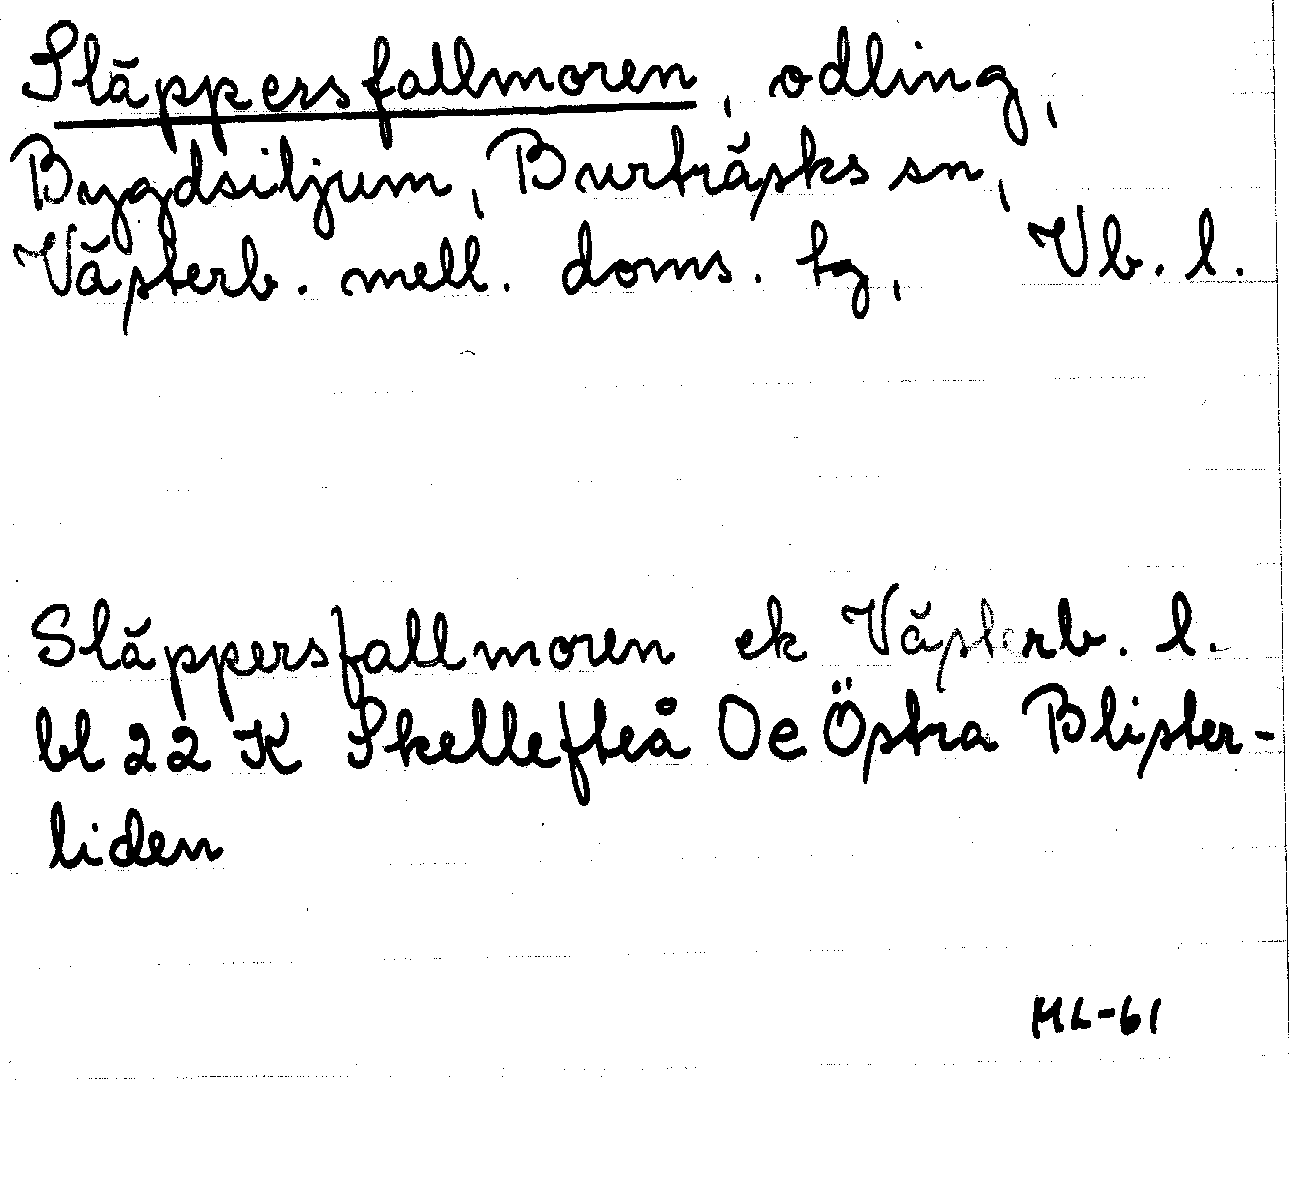 Släppersfallmoren, odling,
Bygdsiljum, Burträsks sn,
Västerb. mell. doms. tg, Vb. l.
Släppersfallmoren ek Västerb. l.
bl 22 K Skellefteå Oe Östra Blister-
liden
ML-61